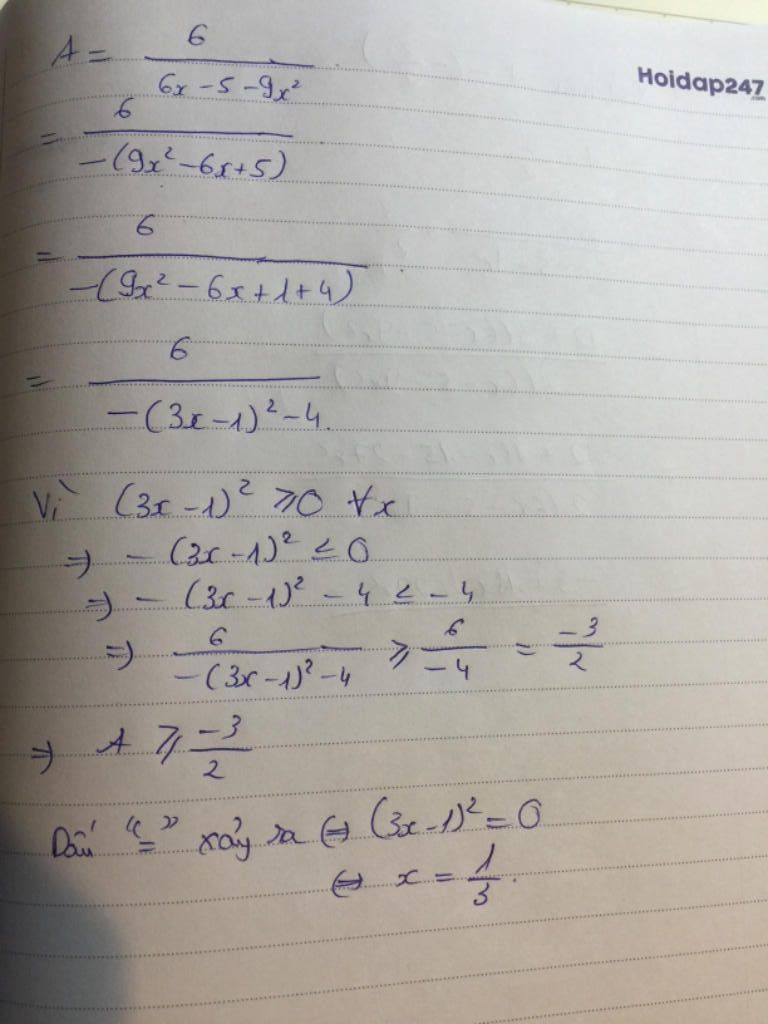 A = 6 / (6x - 5 - 9x²)
Hoidap247.com
= 6 / -(9x² - 6x + 5)
= 6 / -(9x² - 6x + 1 + 4)
= 6 / -(3x - 1)² - 4.
Vì (3x - 1)² ⩾ 0 ∀x
⇒ - (3x - 1)² ≤ 0
⇒ - (3x - 1)² - 4 ≤ - 4
⇒ 6 / -(3x - 1)² - 4 ⩾ 6 / -4 = -3 / 2
⇒ A ⩾ -3 / 2
Dấu "=" xảy ra ⇔ (3x - 1)² = 0
⇔ x = 1 / 3.